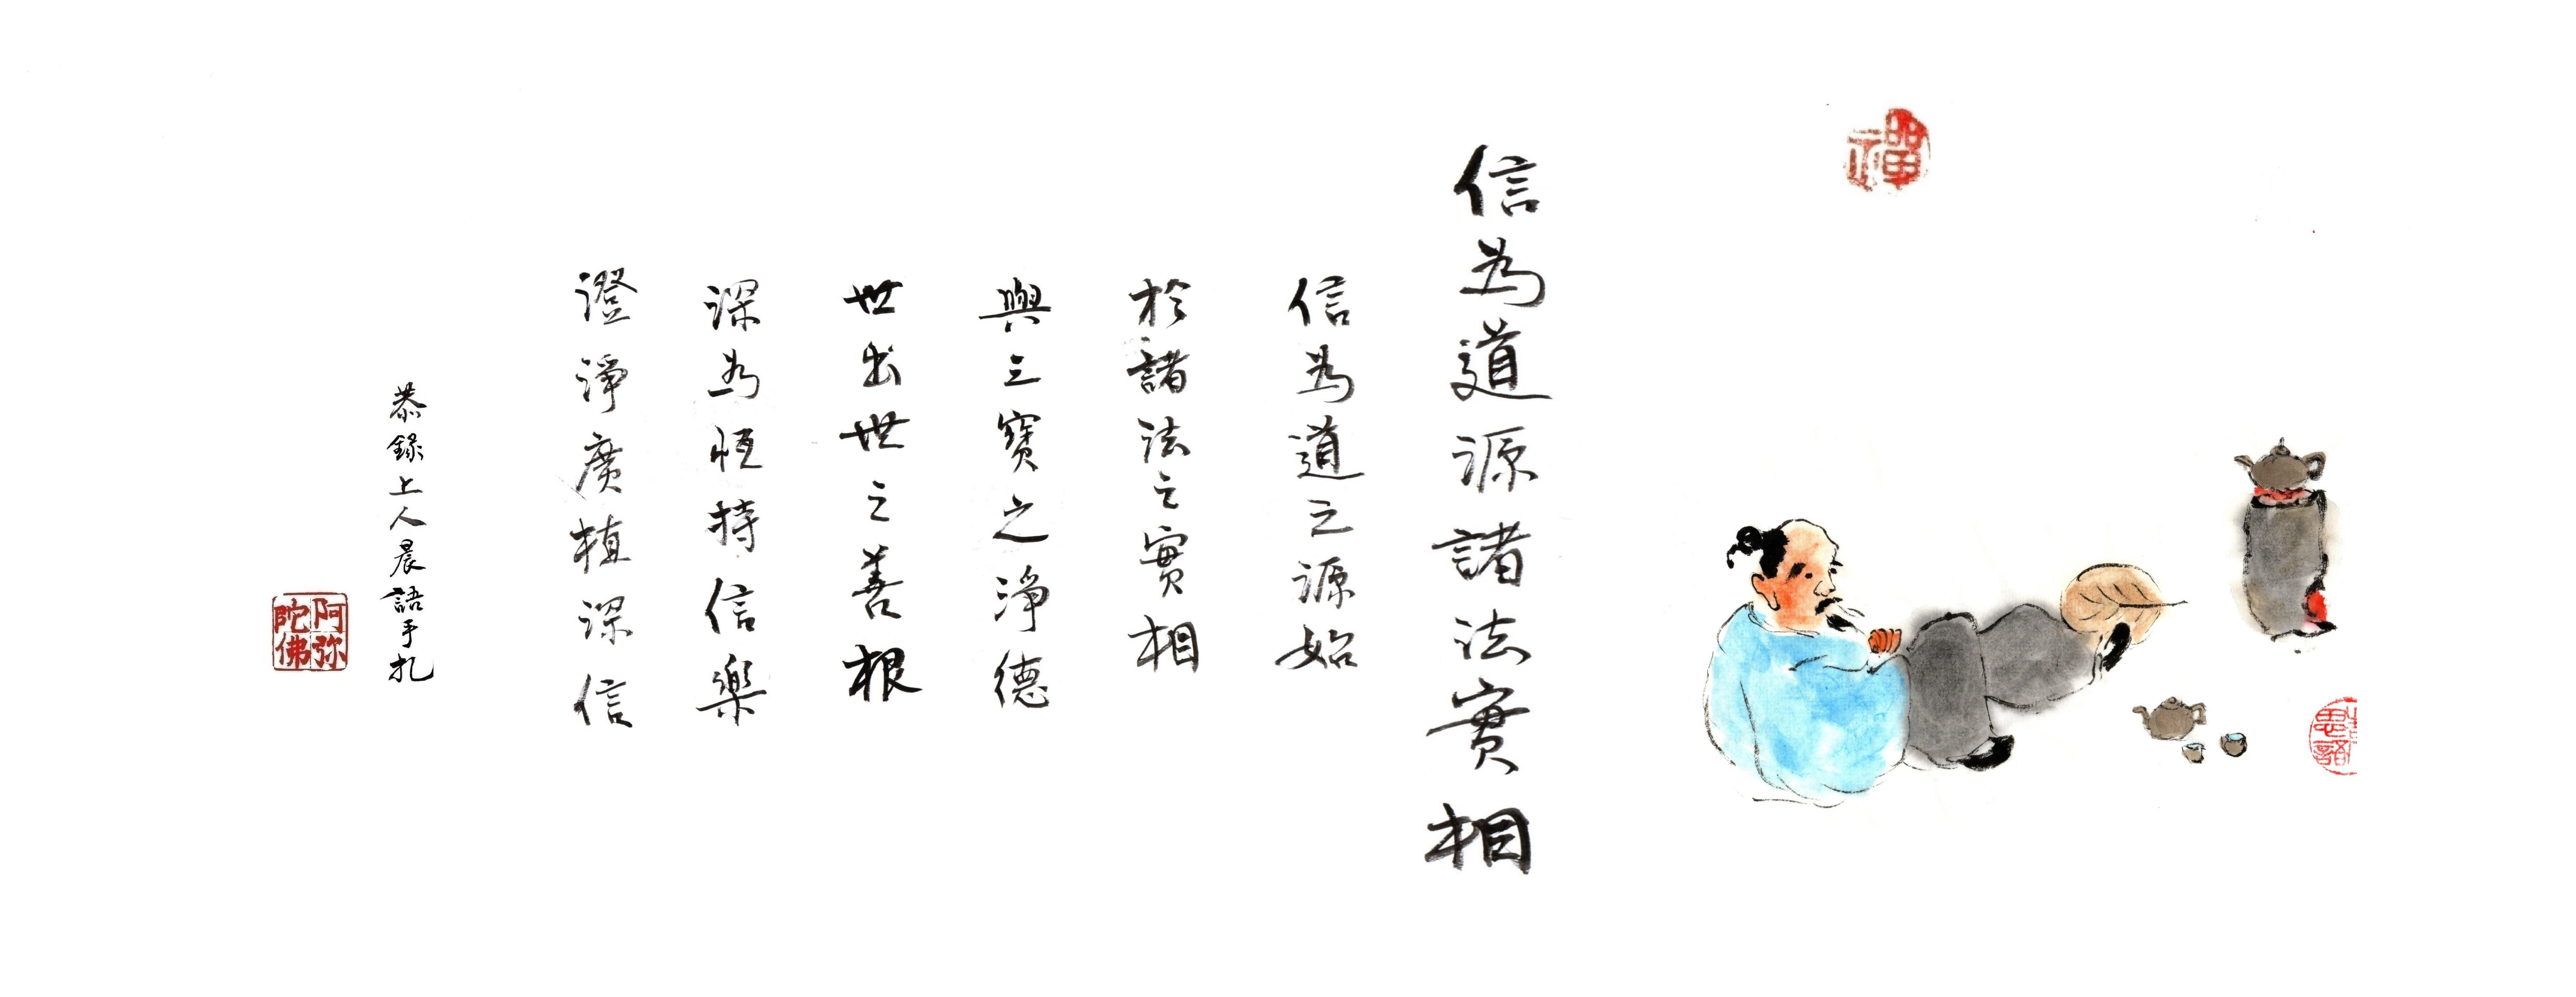 禪
信為道源諸法實相
信為道之源始
於諸法之實相
與三寶之淨德
世出世之善根
深為恆持信樂
澄淨廣植深信
恭錄上人晨語手扎
阿弥
陀佛